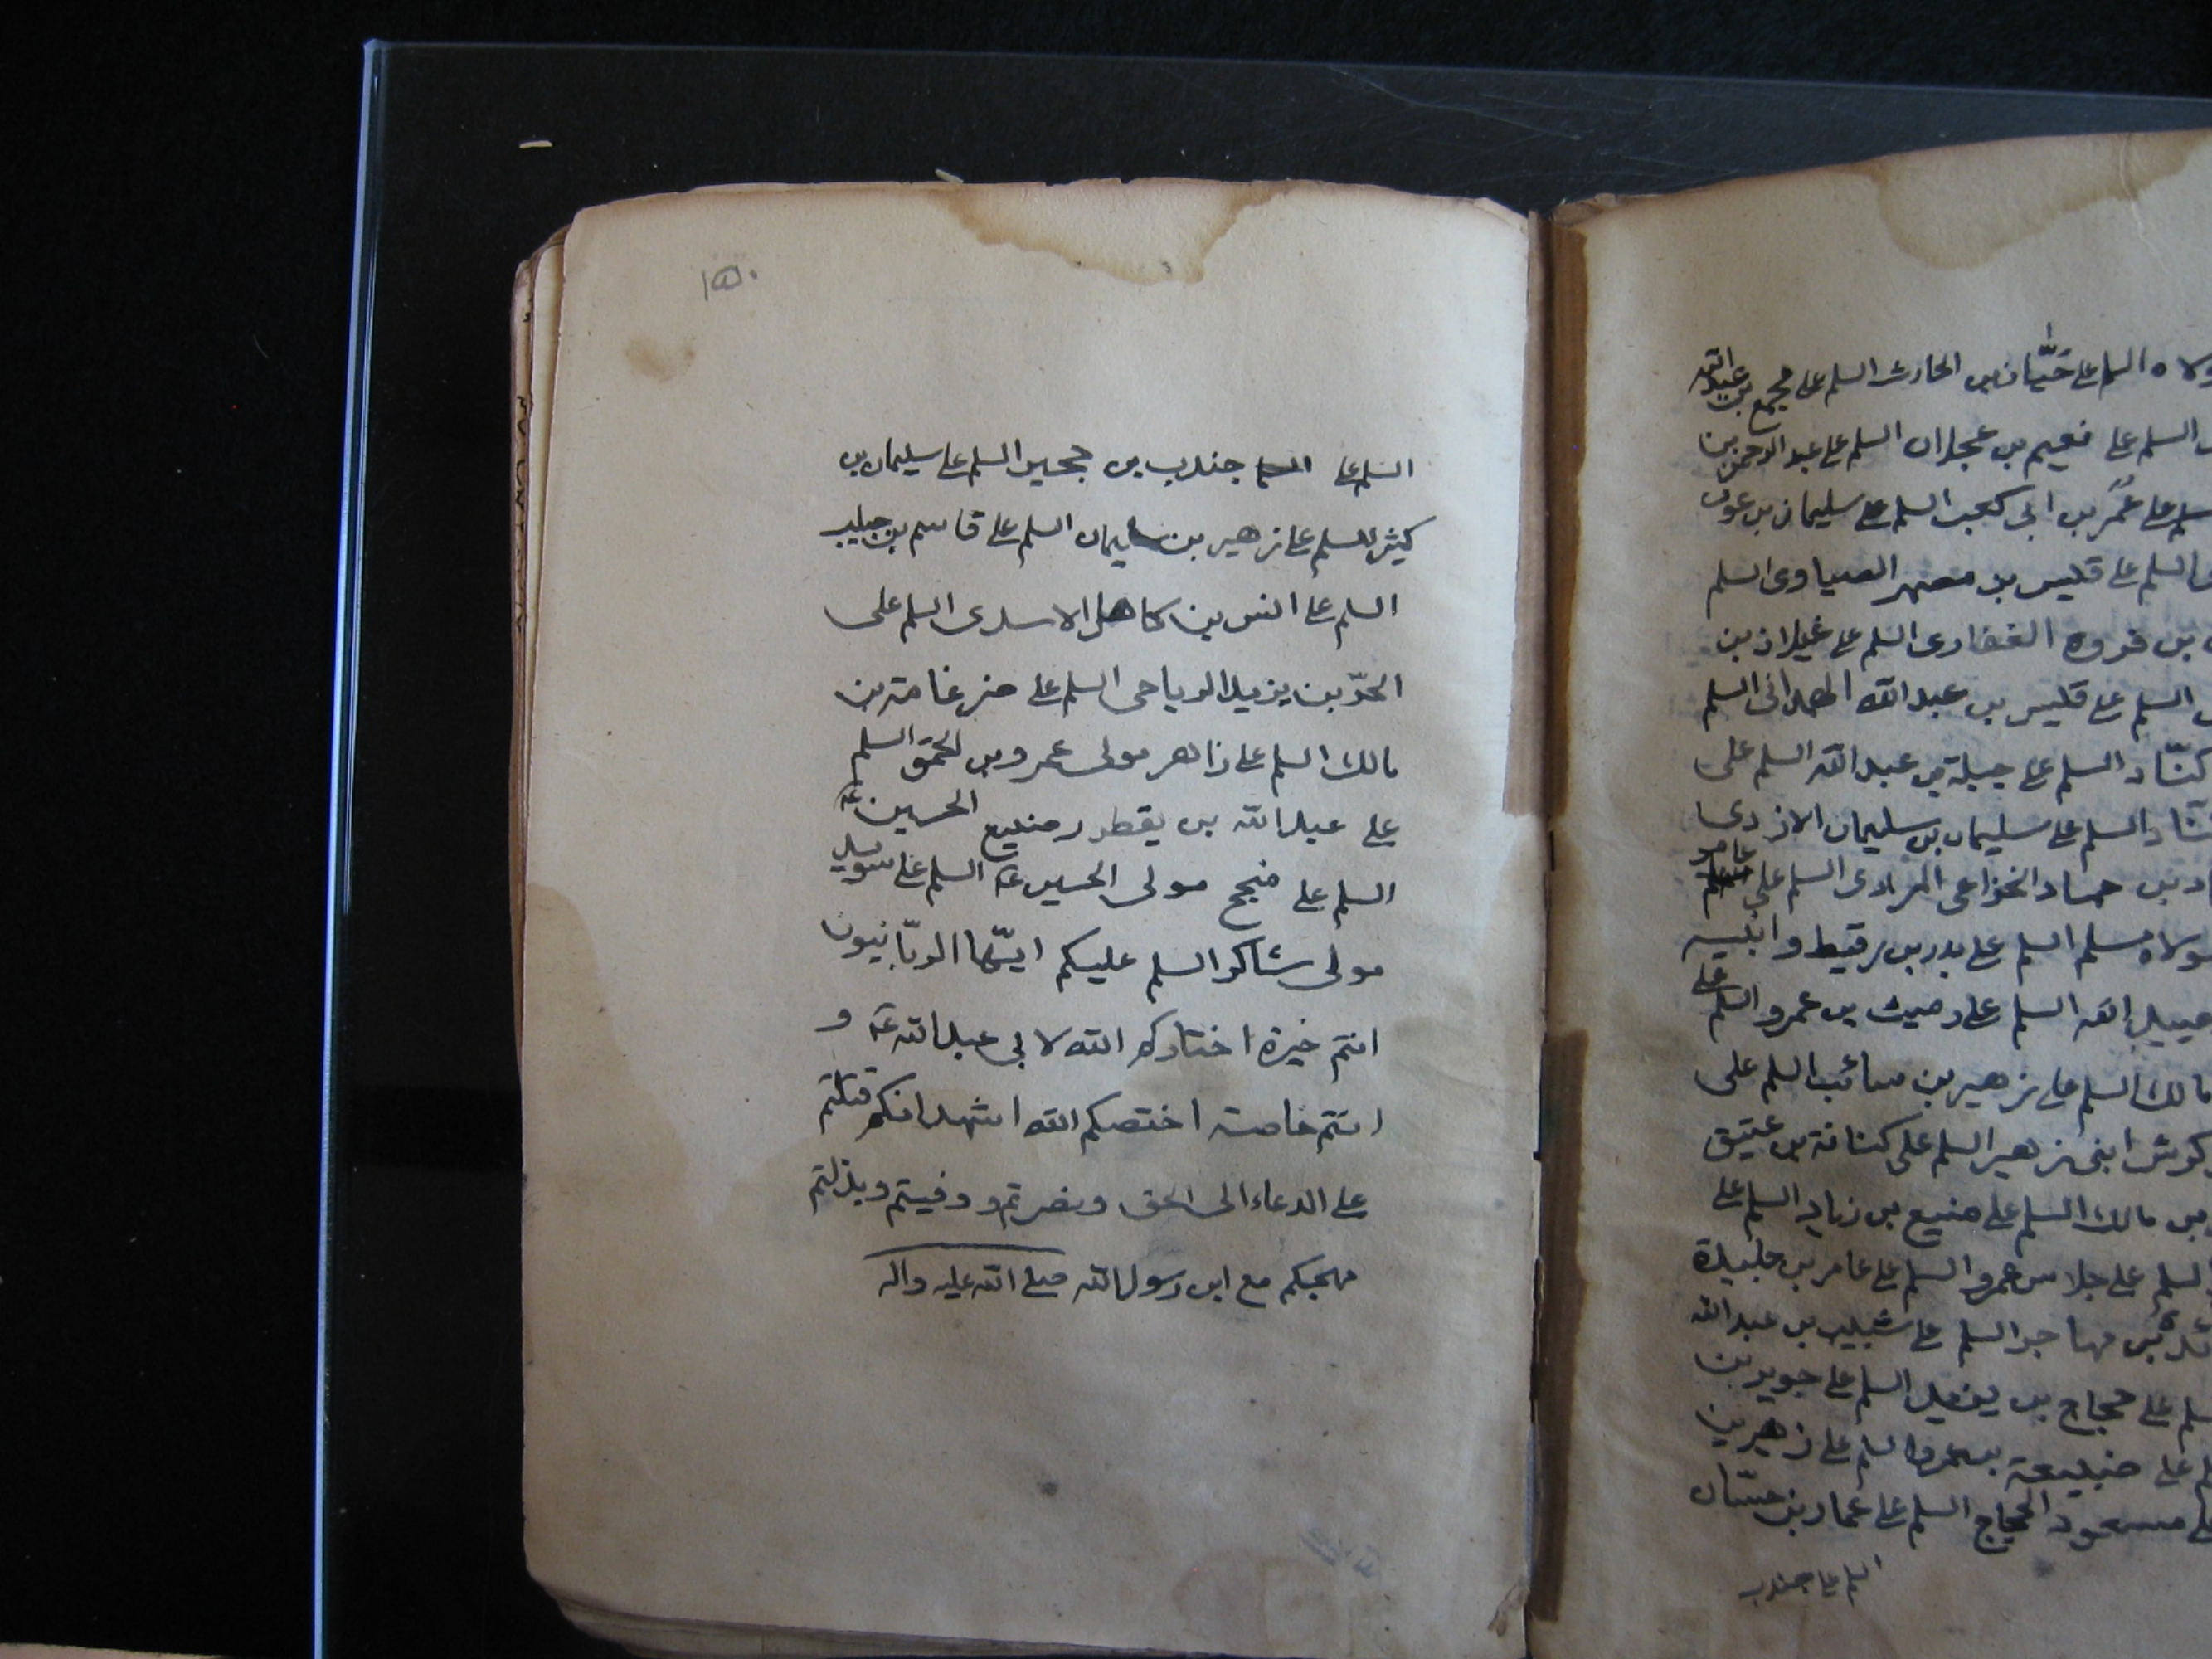 ولاه السلم على حيّان بن الحارث السلم على مجمع بن عبدالله
السلم على نعيم بن عجلان السلم على عبد الرحمن بن
السلم على عمر بن ابى كعب السلم على سليمان بن عون
السلم على قيس بن مصهر الصياوى السلم
بن فروه الغفارى السلم على غيلان بن
السلم على قيس بن عبد الله الهمدانى السلم
كنّاد السلم على جبلة بن عبد الله السلم على
السلم على سليمان بن سليمان الازدى
بن حماد الخزاعى المرادى السلم على عامر
مولاه مسلم السلم على بدر بن رقيط وابنيه
عبيد الله السلم على رميث بن عمرو السلم على
مالك السلم على زهير بن سائب السلم على
كرش ابنى زهير السلم على كنانة بن عتيق
بن مالك السلم على منيع بن زياد السلم على
السلم على جلاس بن عمرو السلم على عامر بن جليدة
بن مهاجر السلم على شبيب بن عبد الله
على حجاج بن يزيد السلم على جوير بن
على ضبيعة بن عمرو السلم على زهير بن
على مسعود الحجاج السلم على عمار بن حسّان
السلم على جندب
١٥٠
السلم على جندب بن حجين السلم على سليمان بن
كثير السلم على زهير بن سليمان السلم على قاسم بن حبيب
السلم على انس بن كاهل الاسدى السلم على
الحرّ بن يزيد الرياحى السلم على ضرغامة بن
مالك السلم على زاهر مولى عمرو بن الحمق السلم
على عبد الله بن يقطر رضيع الحسين ع
السلم على منجح مولى الحسين ع السلم على سويد
مولى شاكر السلم عليكم ايّها الربّانيون
انتم خيرة اختاركم الله لابى عبد الله ع و
انتم خاصة اختصكم الله اشهد انكم قتلتم
على الدعاء الى الحق ونصرتم ووفيتم وبذلتم
مهجكم مع ابن رسول الله صلى الله عليه واله